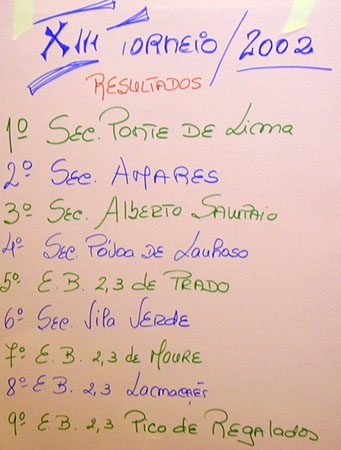 XIII TORNEIO / 2002
RESULTADOS
1º Sec. Ponte de Lima
2º Sec. AMARES
3º Sec. Alberto Sampaio
4º Sec. Póvoa de Lanhoso
5º E.B. 2,3 de PRADO
6º Sec. Vila Verde
7º E.B. 2,3 de MOURE
8º E.B. 2,3 Lamaçães
9º E.B. 2,3 Pico de Regalados